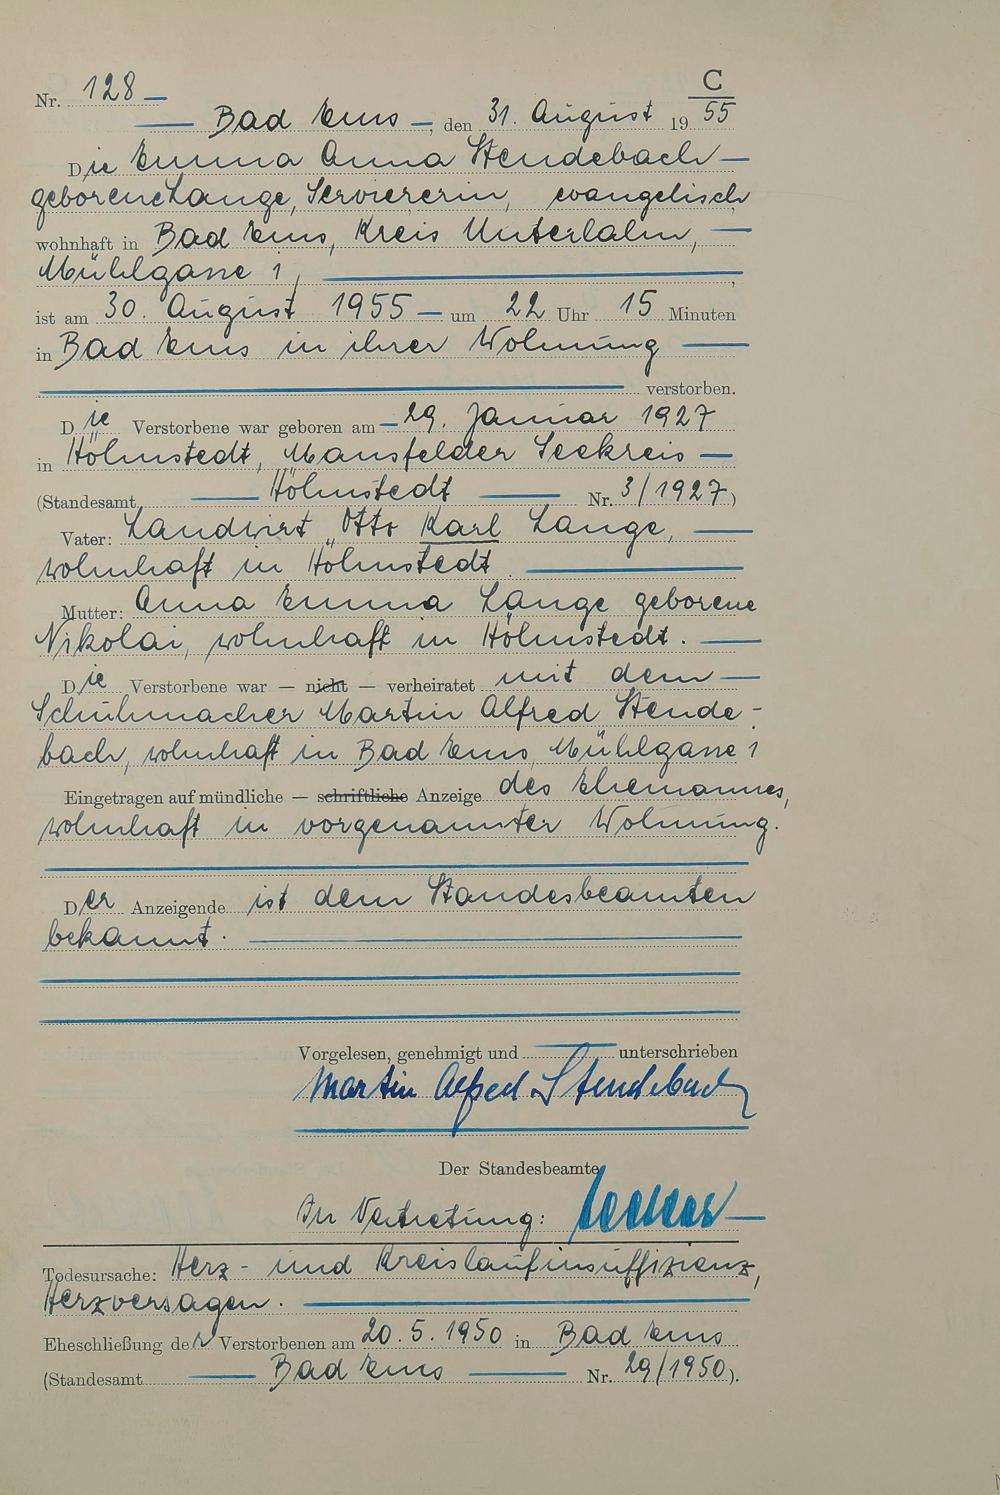 Nr. 128 C
Bad Ems, den 31. August 19 55
Die Emma Anna Stendebach
geborene Lange, Serviererin, evangelisch
wohnhaft in Bad Ems, Kreis Unterlahn,
Mühlgasse 1,
ist am 30. August 1955 um 22 Uhr 15 Minuten
in Bad Ems in ihrer Wohnung
verstorben.
Die Verstorbene war geboren am 29. Januar 1927
in Höhnstedt, Mansfelder Seekreis
(Standesamt Höhnstedt Nr. 3/1927)
Vater: Landwirt Otto Karl Lange,
wohnhaft in Höhnstedt.
Mutter: Anna Emma Lange geborene
Nikolai, wohnhaft in Höhnstedt.
Die Verstorbene war — nicht — verheiratet mit dem
Schuhmacher Martin Alfred Stende-
bach, wohnhaft in Bad Ems, Mühlgasse 1
Eingetragen auf mündliche — schriftliche Anzeige des Ehemannes,
wohnhaft in vorgenannter Wohnung.
Der Anzeigende ist dem Standesbeamten
bekannt.
Vorgelesen, genehmigt und unterschrieben
Martin Alfred Stendebach
Der Standesbeamte
In Vertretung:
Todesursache: Herz- und Kreislaufinsuffizienz,
Herzversagen.
Eheschließung der Verstorbenen am 20.5.1950 in Bad Ems
(Standesamt Bad Ems Nr. 29/1950).